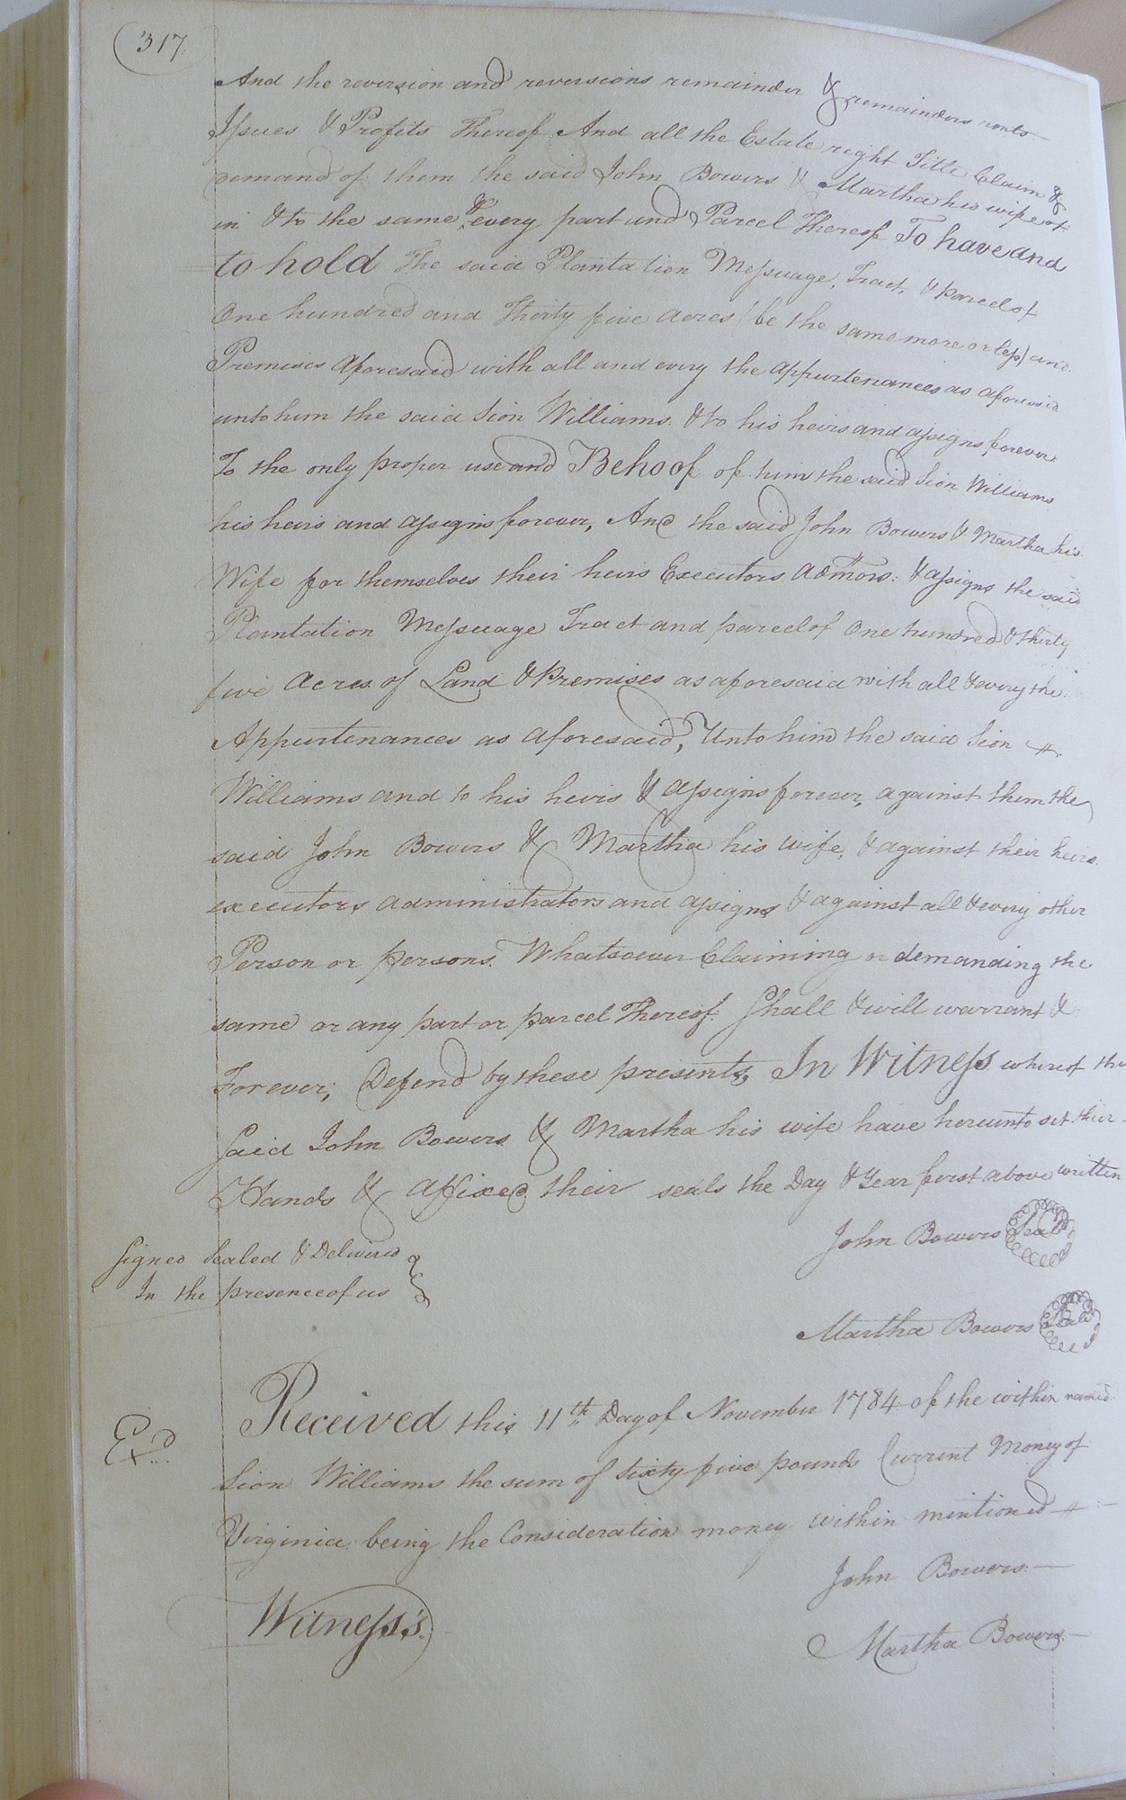 317
And the reversion and reversions remainder & remainders rents
Issues & Profits Thereof And all the Estate right Title Claim &
demand of them the said John Bowers & Martha his wife of
in & to the same & every part und Parcel Thereof To have and
to hold The said Plantation Messuage, Tract, & parcel of
One hundred and Thirty five acres (be the same more or less) and
Premises aforesaid with all and every the appurtenances as aforesaid
unto him the said Sion Williams & to his heirs and assigns forever
To the only proper use and Behoof of him the said Sion Williams
his heirs and assigns forever, And the said John Bowers & Martha his
Wife for themselves their heirs Executors Admors: & assigns the said
Plantation Messuage Tract and parcel of One hundred & thirty
five Acres of Land & Premises as aforesaid with all & every the
Appurtenances as aforesaid, Unto him the said Sion
Williams and to his heirs & assigns forever, against them the
said John Bowers & Martha his wife, & against their heirs
executors administrators and assigns & against all & every other
Person or persons Whatsoever Claiming or demanding the
same or any part or parcel Thereof Shall & will warrant &
Forever; Defend by these presents, In Witness whereof the
Said John Bowers & Martha his wife have hereunto set their
Hands & Affixed their seals the Day & Year first above written
John Bowers Seal
Signed Sealed & Delivered
In the presence of us
Martha Bowers Seal
Received this 11th Day of November 1784 of the within named
Exd.
Sion Williams the sum of Sixty five pounds Current Money of
Virginia being the Consideration money within mentioned
John Bowers
Witness's.
Martha Bowers